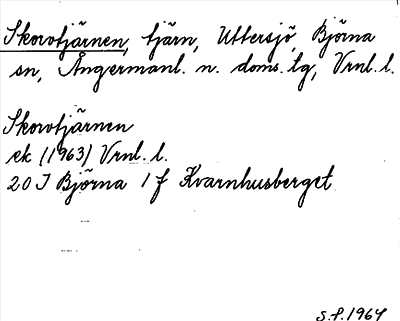 Skorvtjärnen, tjärn, Uttersjö, Björna
sn, Ångermanl. n. doms. lg, Vrnl. l.
Skorvtjärnen
ek (1963) Vrnl. l.
20 I Björna 1 f Kvarnhusberget
S.f. 1964